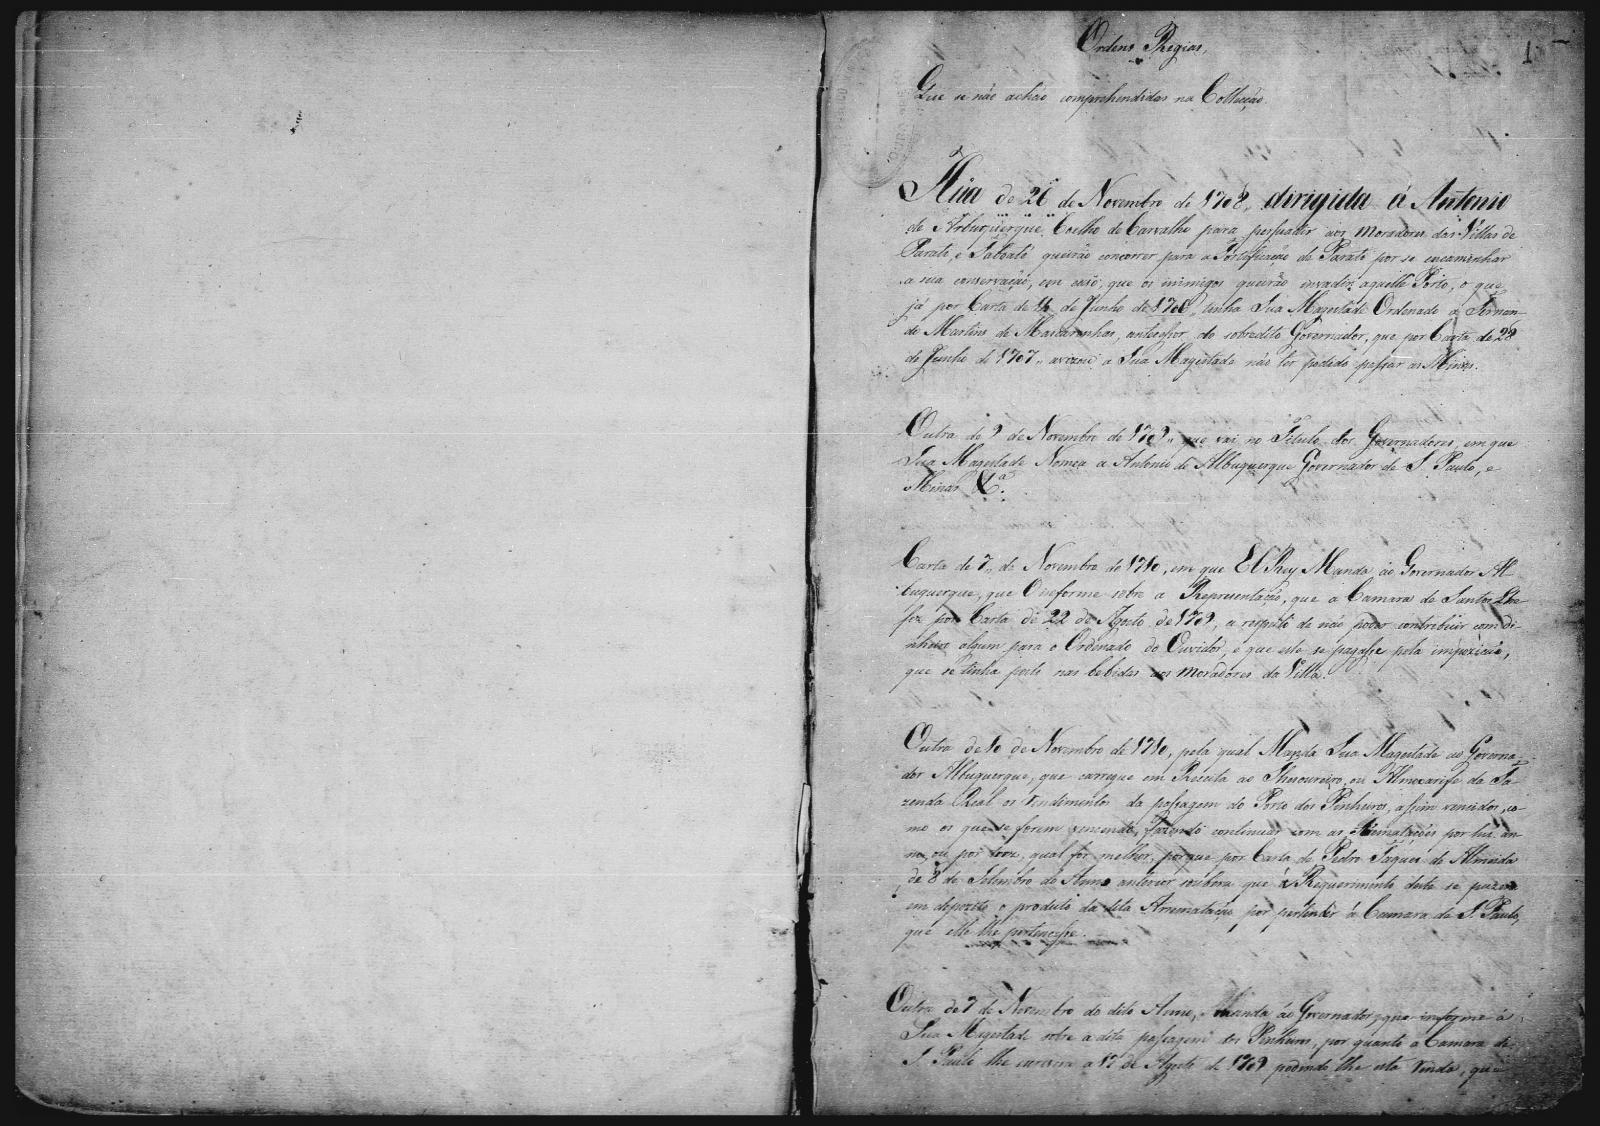 Ordens Regias,
1
Que se não achão comprehendidas na Collecção.
Hũa de 26 de Novembro de 1708, dirigida á Antonio
de Arbuquerque Coelho de Carvalho para persuadir aos moradores das Villas de
Parati, e Taboaté queirão concorrer para a Fortificação de Parati por se encaminhar
a sua conservação, em caso, que os inimigos queirão invadir aquelle Porto, o que
já por Carta de de Junho de 1706, tinha Sua Magestade Ordenado a Fernan-
do Martins de Mascarenhas, antecessor do sobredito Governador, que por Carta de 28
de Junho de 1707, avizou a Sua Magestade não ter podido passar as Minas.
Outra de 9 de Novembro de 1709, que vai no Titulo dos Governadores, em que
Sua Magestade Nomea a Antonio de Albuquerque Governador de S. Paulo, e
Minas &.ª
Carta de 7, de Novembro de 1710, em que El Rey Manda ao Governador Al-
buquerque, que O informe sobre a Reprezentação, que a Camara de Santos lhe
fez por Carta de 22 de Agosto de 1709, a respeito de não poder contribuir com di-
nheiro algum para o Ordenado do Ouvidor, e que este se pagasse pela impozição,
que se tinha posto nas bebidas aos moradores da Villa.
Outra de 10 de Novembro de 1710, pela qual Manda Sua Magestade ao Governa-
dor Albuquerque, que carregue em Receita ao Thesoureiro, ou Almoxarife da Fa-
zenda Real os rendimentos da passagem do Porto dos Pinheiros, assim vencidos, co-
mo os que se forem vencendo, fazendo continuar com as Arematações por hũ an-
no, ou por trez, qual for melhor, porque por Carta de Pedro Taques de Almeida
de 8 de Setembro do Anno anterior soubera que á Requerimento deste se puzera
em depozito o produto da dita Arrematação, por pertender á Camara de S. Paulo,
que elle lhe pertencesse.
Outra de 7 de Novembro do dito Anno, Manda ao Governador, que informe á
Sua Magestade sobre a dita passagem dos Pinheiros, por quanto a Camara de
S. Paulo lhe escrevera a 17 de Agosto de 1709 pedindo lhe esta renda, que